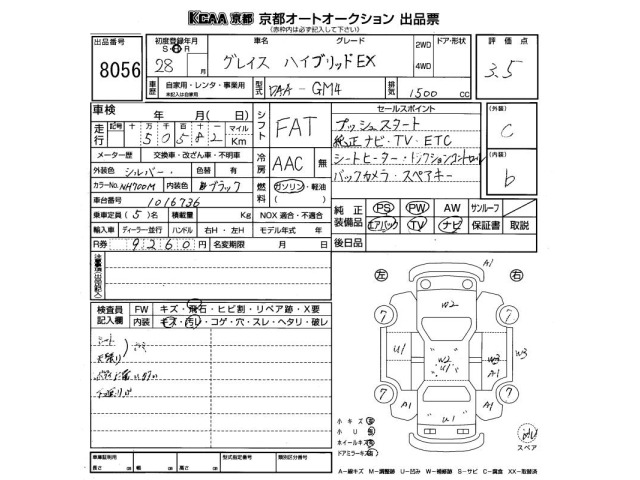 KCAA 京都 京都オートオークション 出品票
(赤枠内は必ず記入して下さい)
出品番号 8056
初度登録年月 S・H・R 28 年 月
車名 グレード グレイス ハイブリッドEX
2WD 4WD ドア・形状
評価点 3.5
車歴 自家用・レンタ・事業用
未記入は自家用
型式 DAA-GM4
排気 1500 cc
車検 年 月(日)
シフト FAT
セールスポイント
プッシュスタート
純正ナビ・TV・ETC
シートヒーター・トラクションコントロール
バックカメラ・スペアキー
(外装) C
(内装) b
走行 記号 十 万 千 百 十 一 マイル Km
50582
メーター歴 交換車・改ざん車・不明車
冷房 AAC 無
外装色 シルバー 色替 有
カラーNo. NH700M 内装色 ブラック
燃料 ガソリン・軽油 ( )
車台番号 1016736
乗車定員 (5)名 積載量 Kg NOX 適合・不適合
輸入車 ディーラー・並行 ハンドル 右H・左H モデル年式 年
R券 9260円 名変期限 月 日
純正装備品 PS PW AW サンルーフ
エアバック TV ナビ 保証書 取説
後日品
注意事項(出品店記入)
検査員記入欄
FW キズ・飛石・ヒビ割・リペア跡・X要
内装 キズ・汚レ・コゲ・穴・スレ・ヘタリ・破レ
シート
左 右
A1
W2
7 7
U1 W2 U1 W3 W3
A1
7 7
A1 U1 A1
小キズ
小U
ホイールキズ
ドアミラーキズ
スペア
車庫証明用 長さ cm 幅 cm 高さ cm 型式指定番号 類別区分番号
A-線キズ M-調整跡 U-凹み W-補修跡 S-サビ C-腐食 XX-取替済